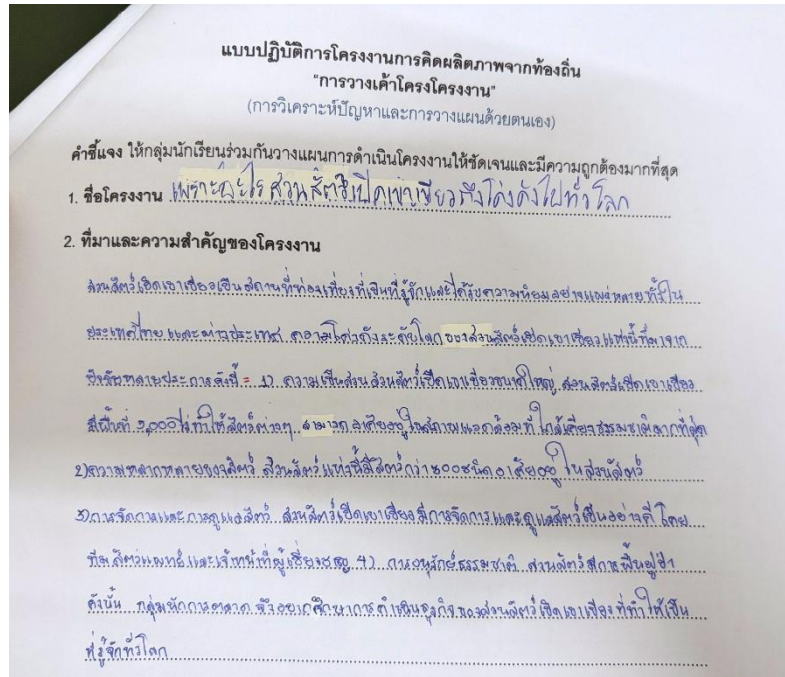 แบบปฏิบัติการโครงงานการคิดผลิตภาพจากท้องถิ่น
"การวางเค้าโครงโครงงาน"
(การวิเคราะห์ปัญหาและการวางแผนด้วยตนเอง)
คำชี้แจง ให้กลุ่มนักเรียนร่วมกันวางแผนการดำเนินโครงงานให้ชัดเจนและมีความถูกต้องมากที่สุด
1. ชื่อโครงงาน เพราะอะไร สวนสัตว์เปิดเขาเขียวถึงโด่งดังไปทั่วโลก
2. ที่มาและความสำคัญของโครงงาน
สวนสัตว์เปิดเขาเขียวเป็นสถานที่ท่องเที่ยวที่เป็นที่รู้จักและได้รับความนิยมอย่างแพร่หลายทั้งใน
ประเทศไทย และต่างประเทศ ความโด่งดังระดับโลกของสวนสัตว์เปิดเขาเขียวแห่งนี้ที่มาจาก
ปัจจัยหลายประการดังนี้ = 1) ความเป็นสวนสัตว์เปิดเขาเขียวขนาดใหญ่ สวนสัตว์เปิดเขาเขียว
มีพื้นที่ ไร่ทำให้สัตว์ต่างๆ สามารถอาศัยอยู่ในสภาพแวดล้อมที่ใกล้เคียงธรรมชาติมากที่สุด
2) ความหลากหลายของสัตว์ สวนสัตว์แห่งนี้มีสัตว์กว่า ชนิดอาศัยอยู่ในสวนสัตว์
3) การจัดการและการดูแลสัตว์ สวนสัตว์เปิดเขาเขียวมีการจัดการและดูแลสัตว์เป็นอย่างดี โดย
ทีมสัตวแพทย์และเจ้าหน้าที่ผู้เชี่ยวชาญ 4) การอนุรักษ์ธรรมชาติ สวนสัตว์มีการฟื้นฟูป่า
ดังนั้น กลุ่มนักการตลาด จึงอยากศึกษาการดำเนินธุรกิจของสวนสัตว์เปิดเขาเขียวที่ทำให้เป็น
ที่รู้จักทั่วโลก